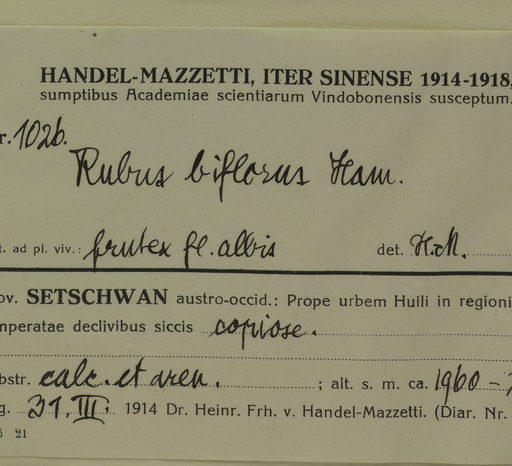 HANDEL-MAZZETTI, ITER SINENSE 1914-1918,
sumptibus Academiae scientiarum Vindobonensis susceptum.
r. 1026.
Rubus biflorus Ham.
t. ad pl. viv.: frutex fl. albis det. H.-M.
ov. SETSCHWAN austro-occid.: Prope urbem Huili in regioni
mperatae declivibus siccis copiose.
bstr. calc. et aren. ; alt. s. m. ca. 1960 -
g. 31. III. 1914 Dr. Heinr. Frh. v. Handel-Mazzetti. (Diar. Nr.
21